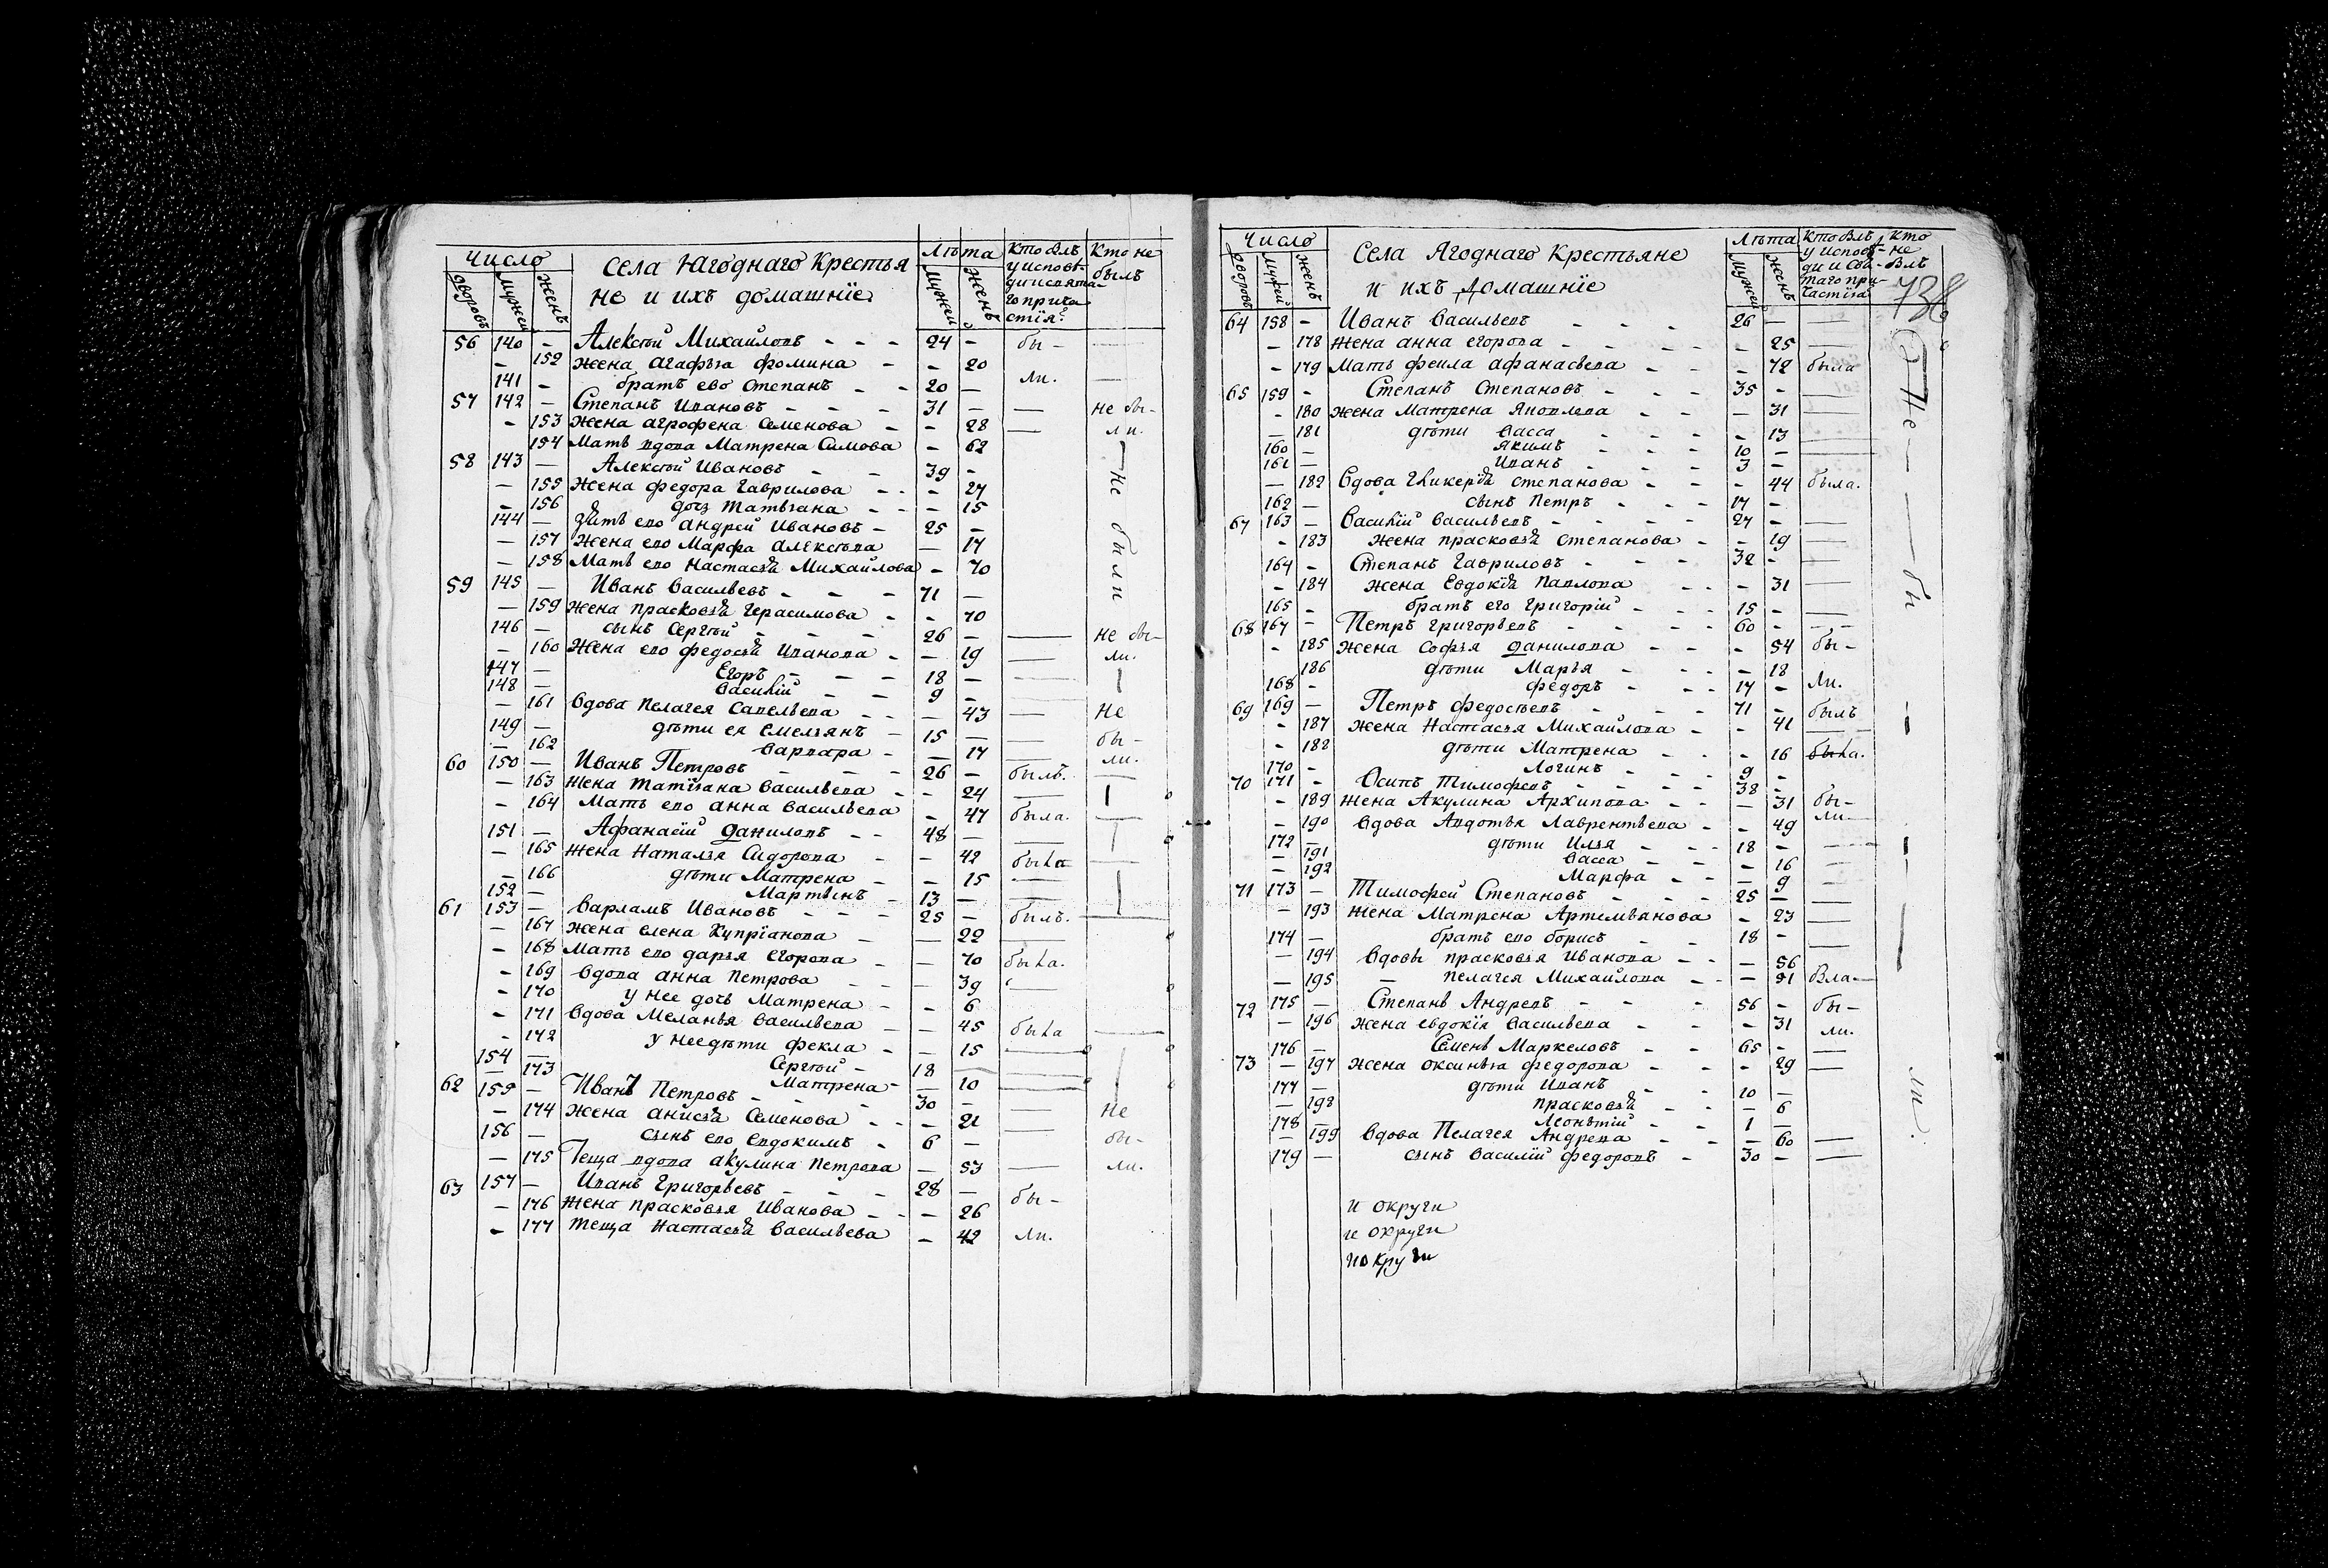 Число Села Ягоднаго Крестья Лѣта Кто былъ Кто не
дворовъ мужей женъ не и ихъ домашнїе мужей женъ у исповѣ- былъ
ди и свята-
го прича
стїя.
56 140 - Алексѣй Михайловъ - - - 24 - бы -
- 152 жена агафья фомина - - 20
141 - братъ ево степанъ - - 20 - ли.
57 142 - Степанъ Ивановъ - - - 31 - - не бы-
- 153 жена агрофена Семенова - - 28 - ли.
154 Мать вдова Матрена - 62
58 143 - Алексѣй Ивановъ - - 39 - не были
- 155 жена федора гаврилова - - - 27
- 156 дочь татьяна - - - 15
144 - зять ево андрей Ивановъ - 25 -
- 157 жена ево Марфа алексѣева - 17
- 158 Мать ево Настасья Михайлова - 70
59 145 - Иванъ Васильевъ - - - 71 -
- 159 жена прасковья герасимова - - 70
146 - сынъ Сергѣй - - - 26 - - не бы-
- 160 жена ево федосья Иванова - - 19 - ли.
147 - Егоръ - - - 18 - -
148 - василій - - 9 -
- 161 вдова пелагея савельева - - - 43 - не
149 - дѣти ея емельянъ - 15 - - бы-
- 162 варвара - - 17 - ли.
60 150 - Иванъ Петровъ - - - 26 - былъ. -
- 163 жена татїяна васильева - - 24 -
- 164 Мать ево анна васильева - 47 была. -
151 - Афанасій даниловъ - - 48 - -
- 165 жена Наталья Сидорова - - 42 была -
- 166 дѣти Матрена - - 15 -
152 - Мартынъ - 13 - -
61 153 - варламъ Ивановъ - - - 25 - былъ. -
- 167 жена елена купрїанова - - 22 -
- 168 Мать ево дарья егорова - - 70 была.
- 169 вдова анна петрова - - - 39 -
- 170 у нее дочь Матрена - - 6
- 171 вдова Меланья васильева - - 45 была -
- 172 у нее дѣти фекла - - 15 -
154 - Сергѣй - 18 -
- 173 Матрена - - 10 -
62 155 - Иванъ Петровъ - - - 30 - -
- 174 жена анисья Семенова - - - 21 - не
156 - сынъ ево евдокимъ - 6 - бы-
- 175 Теща вдова акулина петрова - 53 - ли.
63 157 - Иванъ григорьевъ - - - 28 - бы -
- 176 жена прасковья Иванова - - - 26
- 177 теща Настасья васильева - 42 ли.
Число Села Ягоднаго Крестьяне Лѣта Кто былъ Кто
дворовъ мужей женъ и ихъ домашнїе мужей женъ у исповѣ- не
ди и свя- былъ
таго при-
частїя
738
64 158 - Иванъ васильевъ - - - 26 - -
- 178 жена анна егорова - - - - 25 -
- 179 Мать феила афанасьева - - - 72 была
65 159 - Степанъ степановъ - - - 35 - -
- 180 жена Матрена яковлева - - - 31
- 181 дѣти васса - - - - 13 -
160 - якимъ - - - 10 - -
161 - Иванъ - - - 3 -
- 182 вдова гликерїя степанова - - - 44 была.
162 - сынъ Петръ - - - 17 -
67 163 - василїй васильевъ - - - - 27 - -
- 183 жена прасковья степанова - - 19 -
164 - Степанъ гавриловъ - - - 32 -
- 184 жена Евдокїя павлова - - - 31 -
165 - братъ его григорій - - - 15 - -
68 167 - Петръ григорьевъ - - - - 60 - -
- 185 жена софья данилова - - - 54 бы-
186 дѣти Марья - - - - 18
168 - федоръ - - - 17 - ли.
69 169 - Петръ федосѣевъ - - - 71 - былъ
- 187 жена Настасья Михайлова - - 41 -
- 188 дѣти Матрена - - - 16 была.
170 - логинъ - - - 9 -
70 171 - Осипъ тимофеевъ - - - - 38 -
- 189 жена Акулина Архипова - - - 31 бы-
- 190 вдова авдотья лаврентьева - - 49 ли
172 - дѣти илья - - - 18 - -
- 191 васса - - - 16 -
- 192 Марфа - - - 9 -
71 173 - Тимофей Степановъ - - - 25 - -
- 193 жена Матрена Артемьянова - 23 -
174 - братъ ево борисъ - - 18 - -
- 194 вдовы прасковья Иванова - - - 56
- 195 - пелагея Михайлова - - - 51
72 175 - Степанъ Андревъ - - - 56 - бы -
- 196 жена евдокїя васильева - - - 31 ли.
176 - Семенъ Маркеловъ - - 65 - -
73 - 197 жена оксинья федорова - - - 29 -
177 - дѣти Иванъ - - 10 -
- 198 прасковья - - - 6
178 - леонтїй - - 1 -
- 199 вдова Пелагея Андрева - - - 60 -
179 - сынъ василїй федоровъ - 30 - -
не - бы - ли.
и округи
и округи
и округи